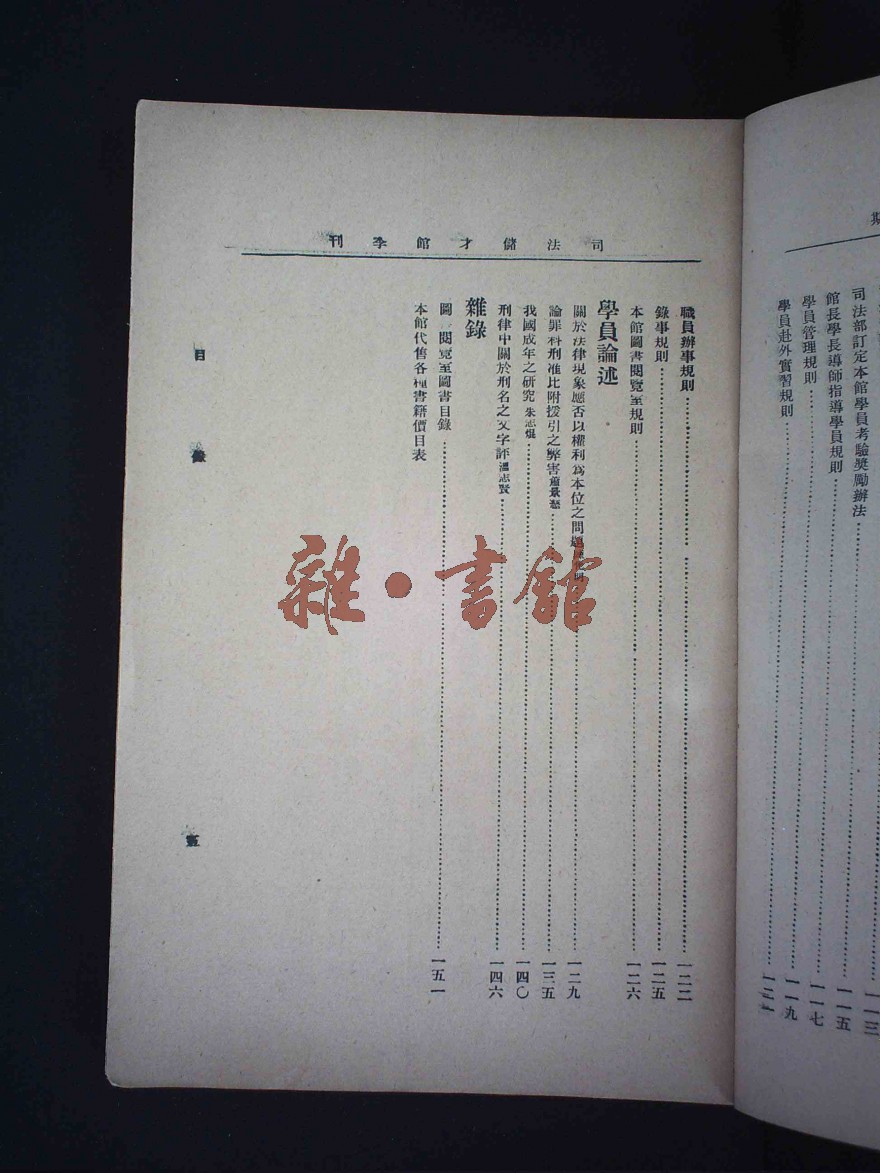 期
司法部訂定本館學員考驗獎勵辦法……一一三
館長學長導師指導學員規則……一一五
學員管理規則……一一七
一一九
學員赴外實習規則……一二一
司法儲才館季刊
職員辦事規則……一二二
錄事規則……一二五
本館圖書閱覽室規則……一二六
學員論述
關於法律現象應否以權利為本位之問題……一二九
論罪科刑准比附援引之弊害……一三五
我國成年之研究 朱志焜……一四〇
刑律中關於刑名之文字評 溫志賢……一四六
雜錄
圖 閱覽室圖書目錄……一五一
本館代售各種書籍價目表
目 錄
五
雜·書館